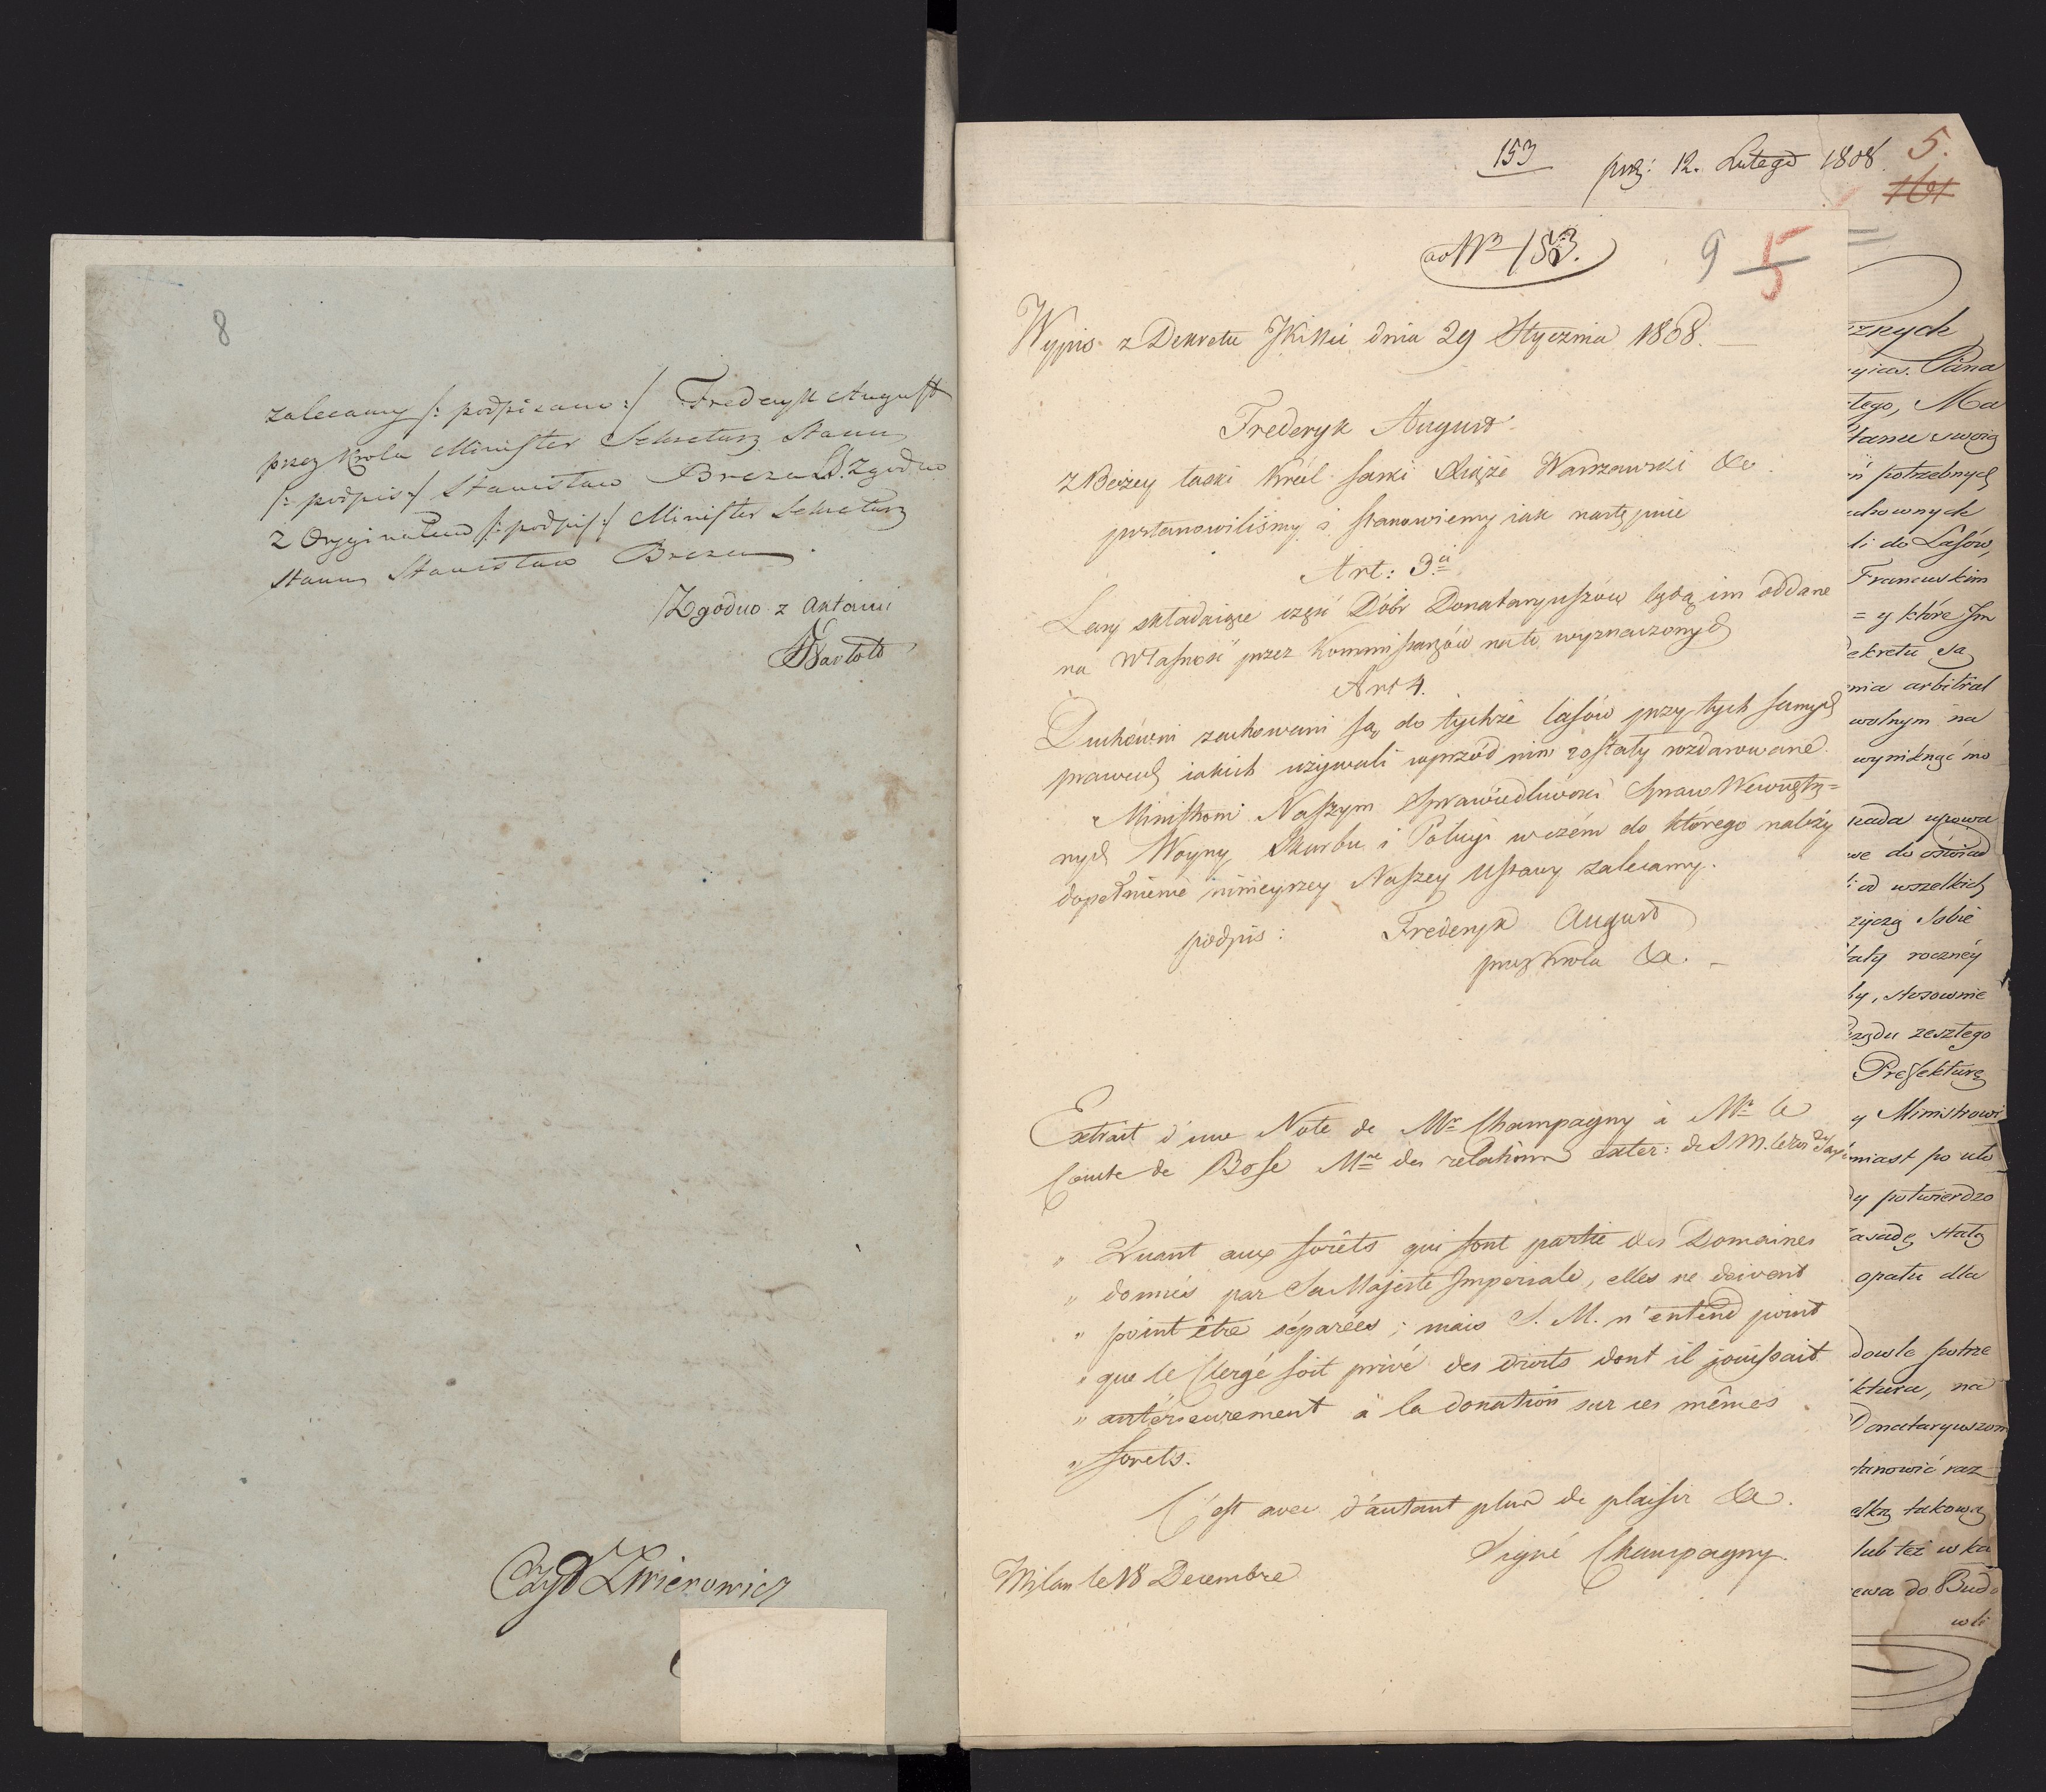 8
zalecamy /: podpisano :/ Frederyk August
przez Krola Minister Sekretarz Stanu
/: podpis :/ Stanisław Breza LS. Zgodno
z Oryginałem /: podpis :/ Minister Sekretarz
Stanu Stanisław Breza
Zgodno z Aktami
153
prez: 12. Lutego 1808
5.
161
ad Nro 153.
9 5
Wypis z Dekretu JKMci dnia 29 Stycznia 1808.
Frederyk August
z Bożey łaski Król Saski Xiąże Warszawski &c.
postanowiliśmy i stanowiemy iak nastę pnie
Art: 3ci
Lasy składaiące część Dóbr Donataryuszów będą im oddane
na Własność przez Kommissarzów na to wyznaczonych
Art 4.
Duchowni zachowani są do tychże lasów przy tych samych
prawach iakich używali wprzód nim zostały rozdarowane.
Ministrom Naszym Sprawiedliwości Spraw Wewnętrz=
nych Woyny Skarbu i Policyi wczém do którego należy
dopełnienie ninieyszey Naszey Ustawy zalecamy.
podpis: Frederyk August
przez Krola &c. –
Extrait d'une Note de Mr Champagny à Mr le
Comte de Bose Mre des relations exter: de S. M. le roi de Saxe
" Quant aux forêts qui font partie des Domaines
" donnés par Sa Majesté Imperiale, elles ne doivent
" point être séparées; mais S. M. n'entend point
" que le Clergé soit privé des droits dont il jouissait
" antérieurement à la donation sur ces mêmes
" forets.
C'est avec d'autant plus de plaisir &c.
Signé Champagny.
Milan le 18 Decembre
znych
Pana
tego, Ma
Stanu swoią
potrzebnych
chownych
li do Lasów,
Francuskim
= y które Im
ekretu są
nia arbitral
wolnym na
wyniknąć mo
kada upowa
we do oświad
i od wszelkich
życzą Sobie
łaty roczney
by, stosownie
Rządu zeszłego
Prefekturę
y Ministrowi
miast po uło
dy potwierdzo
asadę stałą
opału dla
dowle potrze
ktura, na
Donataryuszom
stanowić raz
elką takową
lub też w ka
ewa do Budo
wli